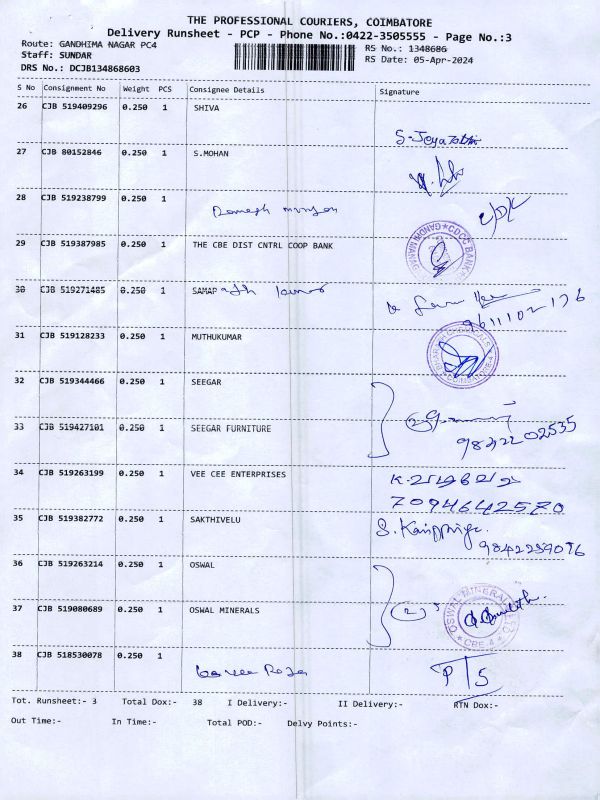 THE PROFESSIONAL COURIERS, COIMBATORE
Delivery Runsheet - PCP - Phone No.:0422-3505555 - Page No.:3
Route: GANDHIMA NAGAR PC4 RS No.: 1348686
Staff: SUNDAR RS Date: 05-Apr-2024
DRS No.: DCJB134868603
S No Consignment No Weight PCS Consignee Details Signature
26 CJB 519409296 0.250 1 SHIVA
27 CJB 80152846 0.250 1 S.MOHAN
28 CJB 519238799 0.250 1
29 CJB 519387985 0.250 1 THE CBE DIST CNTRL COOP BANK
30 CJB 519271485 0.250 1 SAMAP
9611102176
31 CJB 519128233 0.250 1 MUTHUKUMAR
32 CJB 519344466 0.250 1 SEEGAR
33 CJB 519427101 0.250 1 SEEGAR FURNITURE
2
9842202535
34 CJB 519263199 0.250 1 VEE CEE ENTERPRISES
7094642570
35 CJB 519382772 0.250 1 SAKTHIVELU
36 CJB 519263214 0.250 1 OSWAL
37 CJB 519080689 0.250 1 OSWAL MINERALS 2
OSWAL MINERAL
CBE-4
38 CJB 518530078 0.250 1
Tot. Runsheet:- 3 Total Dox:- 38 I Delivery:- II Delivery:- RTN Dox:-
Out Time:- In Time:- Total POD:- Delvy Points:-